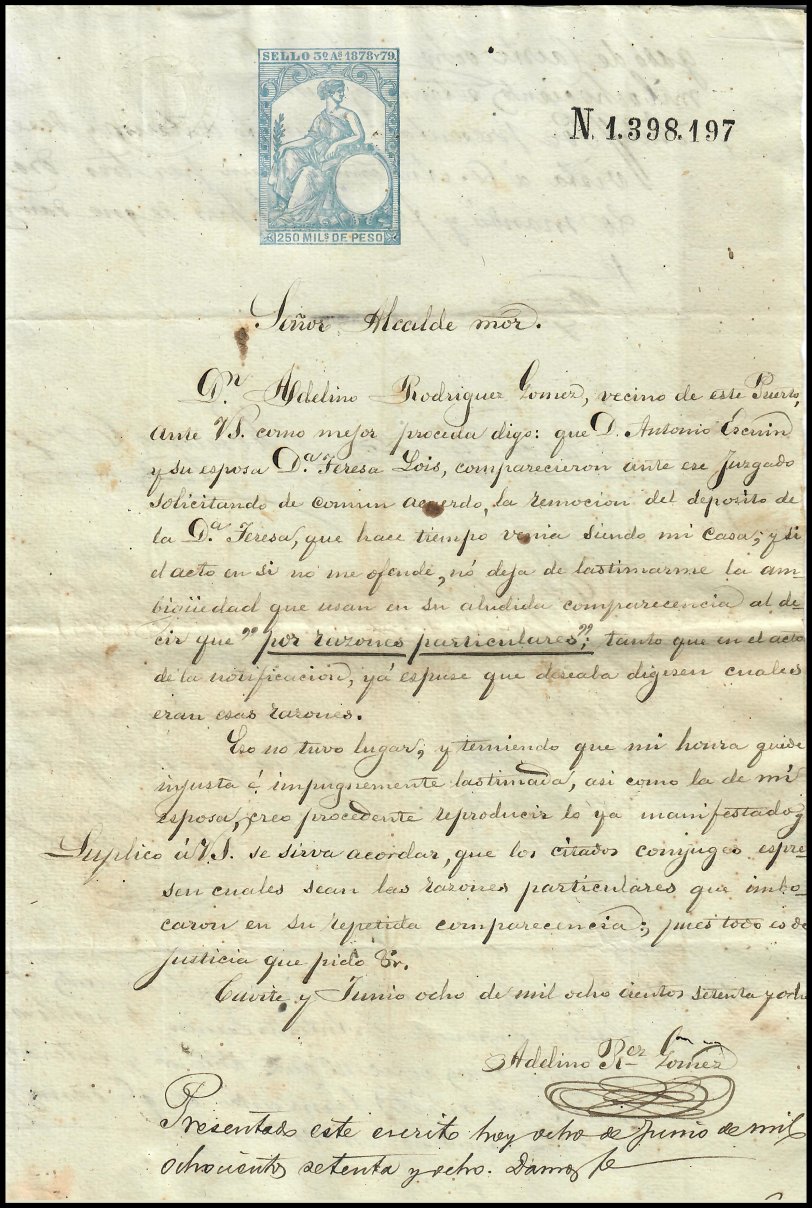 SELLO 3º Aˢ 1878 Y 79.
N. 1.398.197
250 MILˢ DE PESO
Señor Alcalde mor.
Dⁿ Adelino Rodriguez Gomez, vecino de este Puerto,
ante VS. como mejor proceda digo: que D. Antonio Escuin
y su esposa D.ª Teresa Lois, comparecieron ante ese Juzgado
solicitando de comun acuerdo, la remocion del deposito de
la D.ª Teresa, que hace tiempo venia siendo mi casa; y si
el acto en si no me ofende, nó deja de lastimarme la am-
bigüedad que usan en su aludida comparecencia al de-
cir que "por razones particulares"; tanto que en el acto
de la notificacion, yá espuse que deseaba digesen cuales
eran esas razones.
Eso no tuvo lugar; y temiendo que mi honra quede
injusta é impugnemente lastimada, asi como la de mi
esposa, creo procedente reproducir lo ya manifestado y
Suplico á V.S. se sirva acordar, que los citados conjuges espre-
sen cuales sean las razones particulares que imbo-
caron en su repetida comparecencia; pues todo es de
justicia que pido &ª.
Cavite y Junio ocho de mil ocho cientos setenta y ocho
Adelino Rez Gomez
Presentado este escrito hoy ocho de Junio de mil
ochocientos setenta y ocho. Damos fe